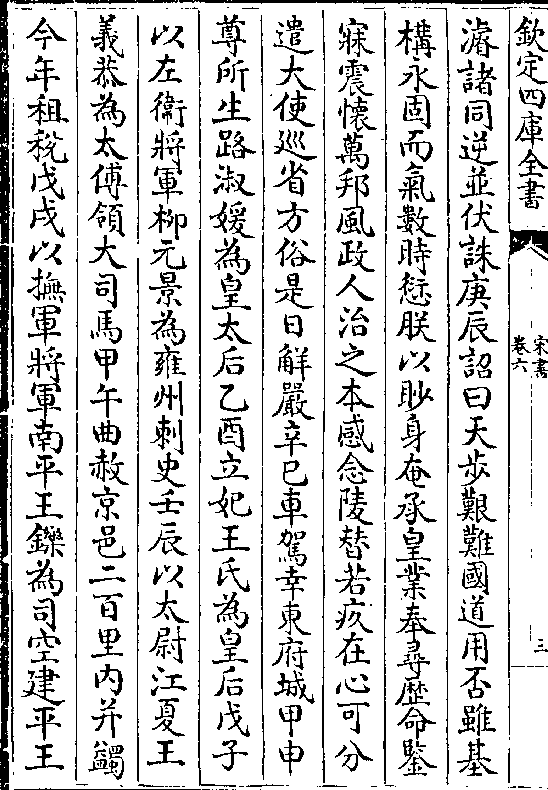 欽定四庫全書
宋書
卷六
三
濬諸同逆並伏誅庚辰詔曰天步艱難國道用否雖基
構永固而氣數時愆朕以眇身奄承皇業奉尋歴命鑒
寐震懐萬邦風政人治之本感念陵替若疚在心可分
遣大使廵省方俗是日解嚴辛巳車駕幸東府城甲申
尊所生路淑媛為皇太后乙酉立妃王氏為皇后戊子
以左衛將軍柳元景為雍州刺史壬辰以太尉江夏王
義恭為太傅領大司馬甲午曲赦京邑二百里内并蠲
今年租稅戊戌以撫軍將軍南平王鑠為司空建平王